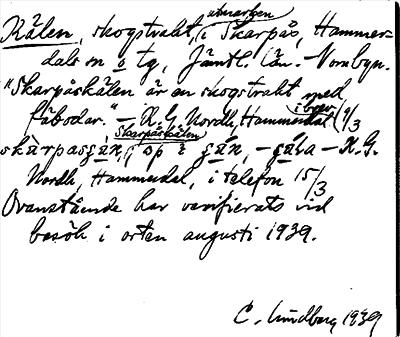 utmarken
Kälen, skogstrakt, i Skarpås, Hammer-
dals sn o tg, Jämtl. län. - Norrbyn.
"Skarpåskälen är en skogstrakt med
fäbodar." - K.G. Nordh, Hammerdal i brev (9/3
Skarpåskälen
skàrpas
- K.G.
Nordh, Hammerdal, i telefon 15/3
Ovanstående har verifierats vid
besök i orten augusti 1939.
C. Lindberg 1939